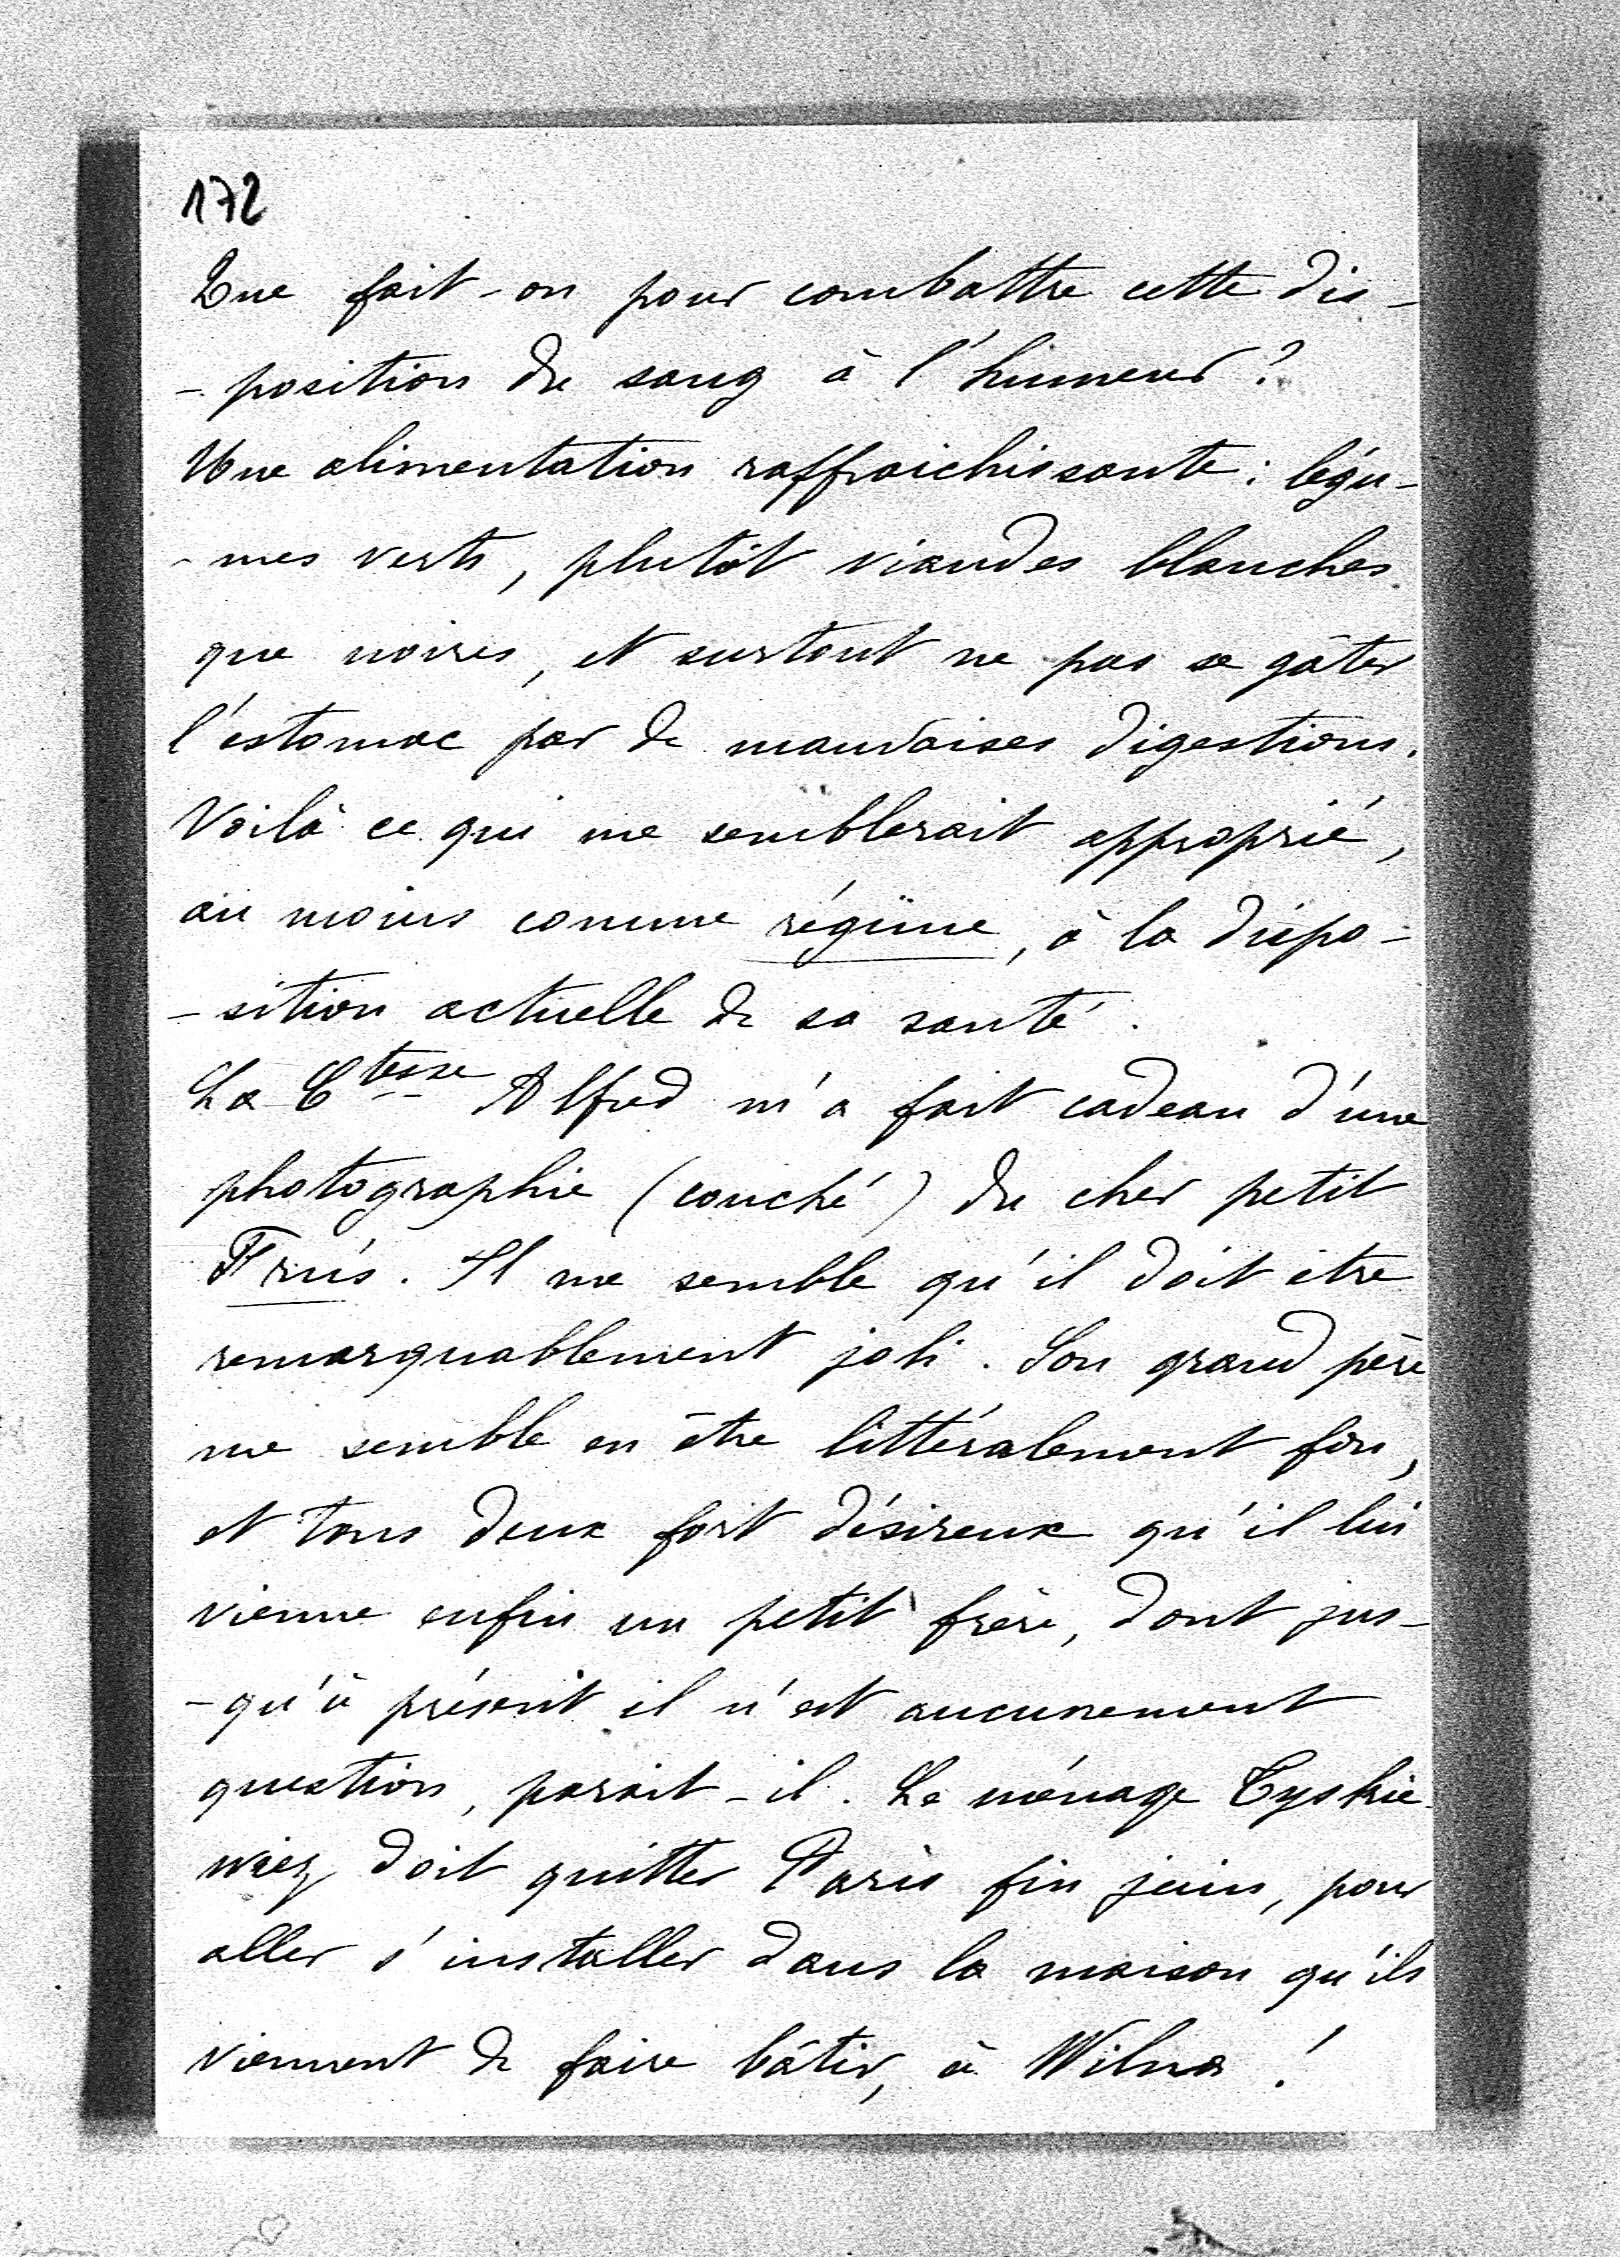 172
Que fait-on pour combattre cette dis-
-position du sang à l'humeur ?
Une alimentation raffraichissante : légu-
-mes verts, plutôt viandes blanches
que noires, et surtout ne pas se gâter
l'estomac par de mauvaises digestions.
Voilà ce qui me semblerait approprié,
au moins comme régime, à la dispo-
-sition actuelle de sa santé.
La Ctesse Alfred m'a fait cadeau d'une
photographie (couché) du cher petit
Il me semble qu'il doit être
remarquablement joli. Son grand père
me semble en être littéralement fou,
et tous deux fort désireux qu'il lui
vienne enfin un petit frère, dont jus-
-qu'à présent il n'est aucunement
question, parait-il. Le ménage Tyskie-
wicz doit quitter Paris fin juin, pour
aller s'installer dans la maison qu'ils
viennent de faire bâtir, à Wilna !